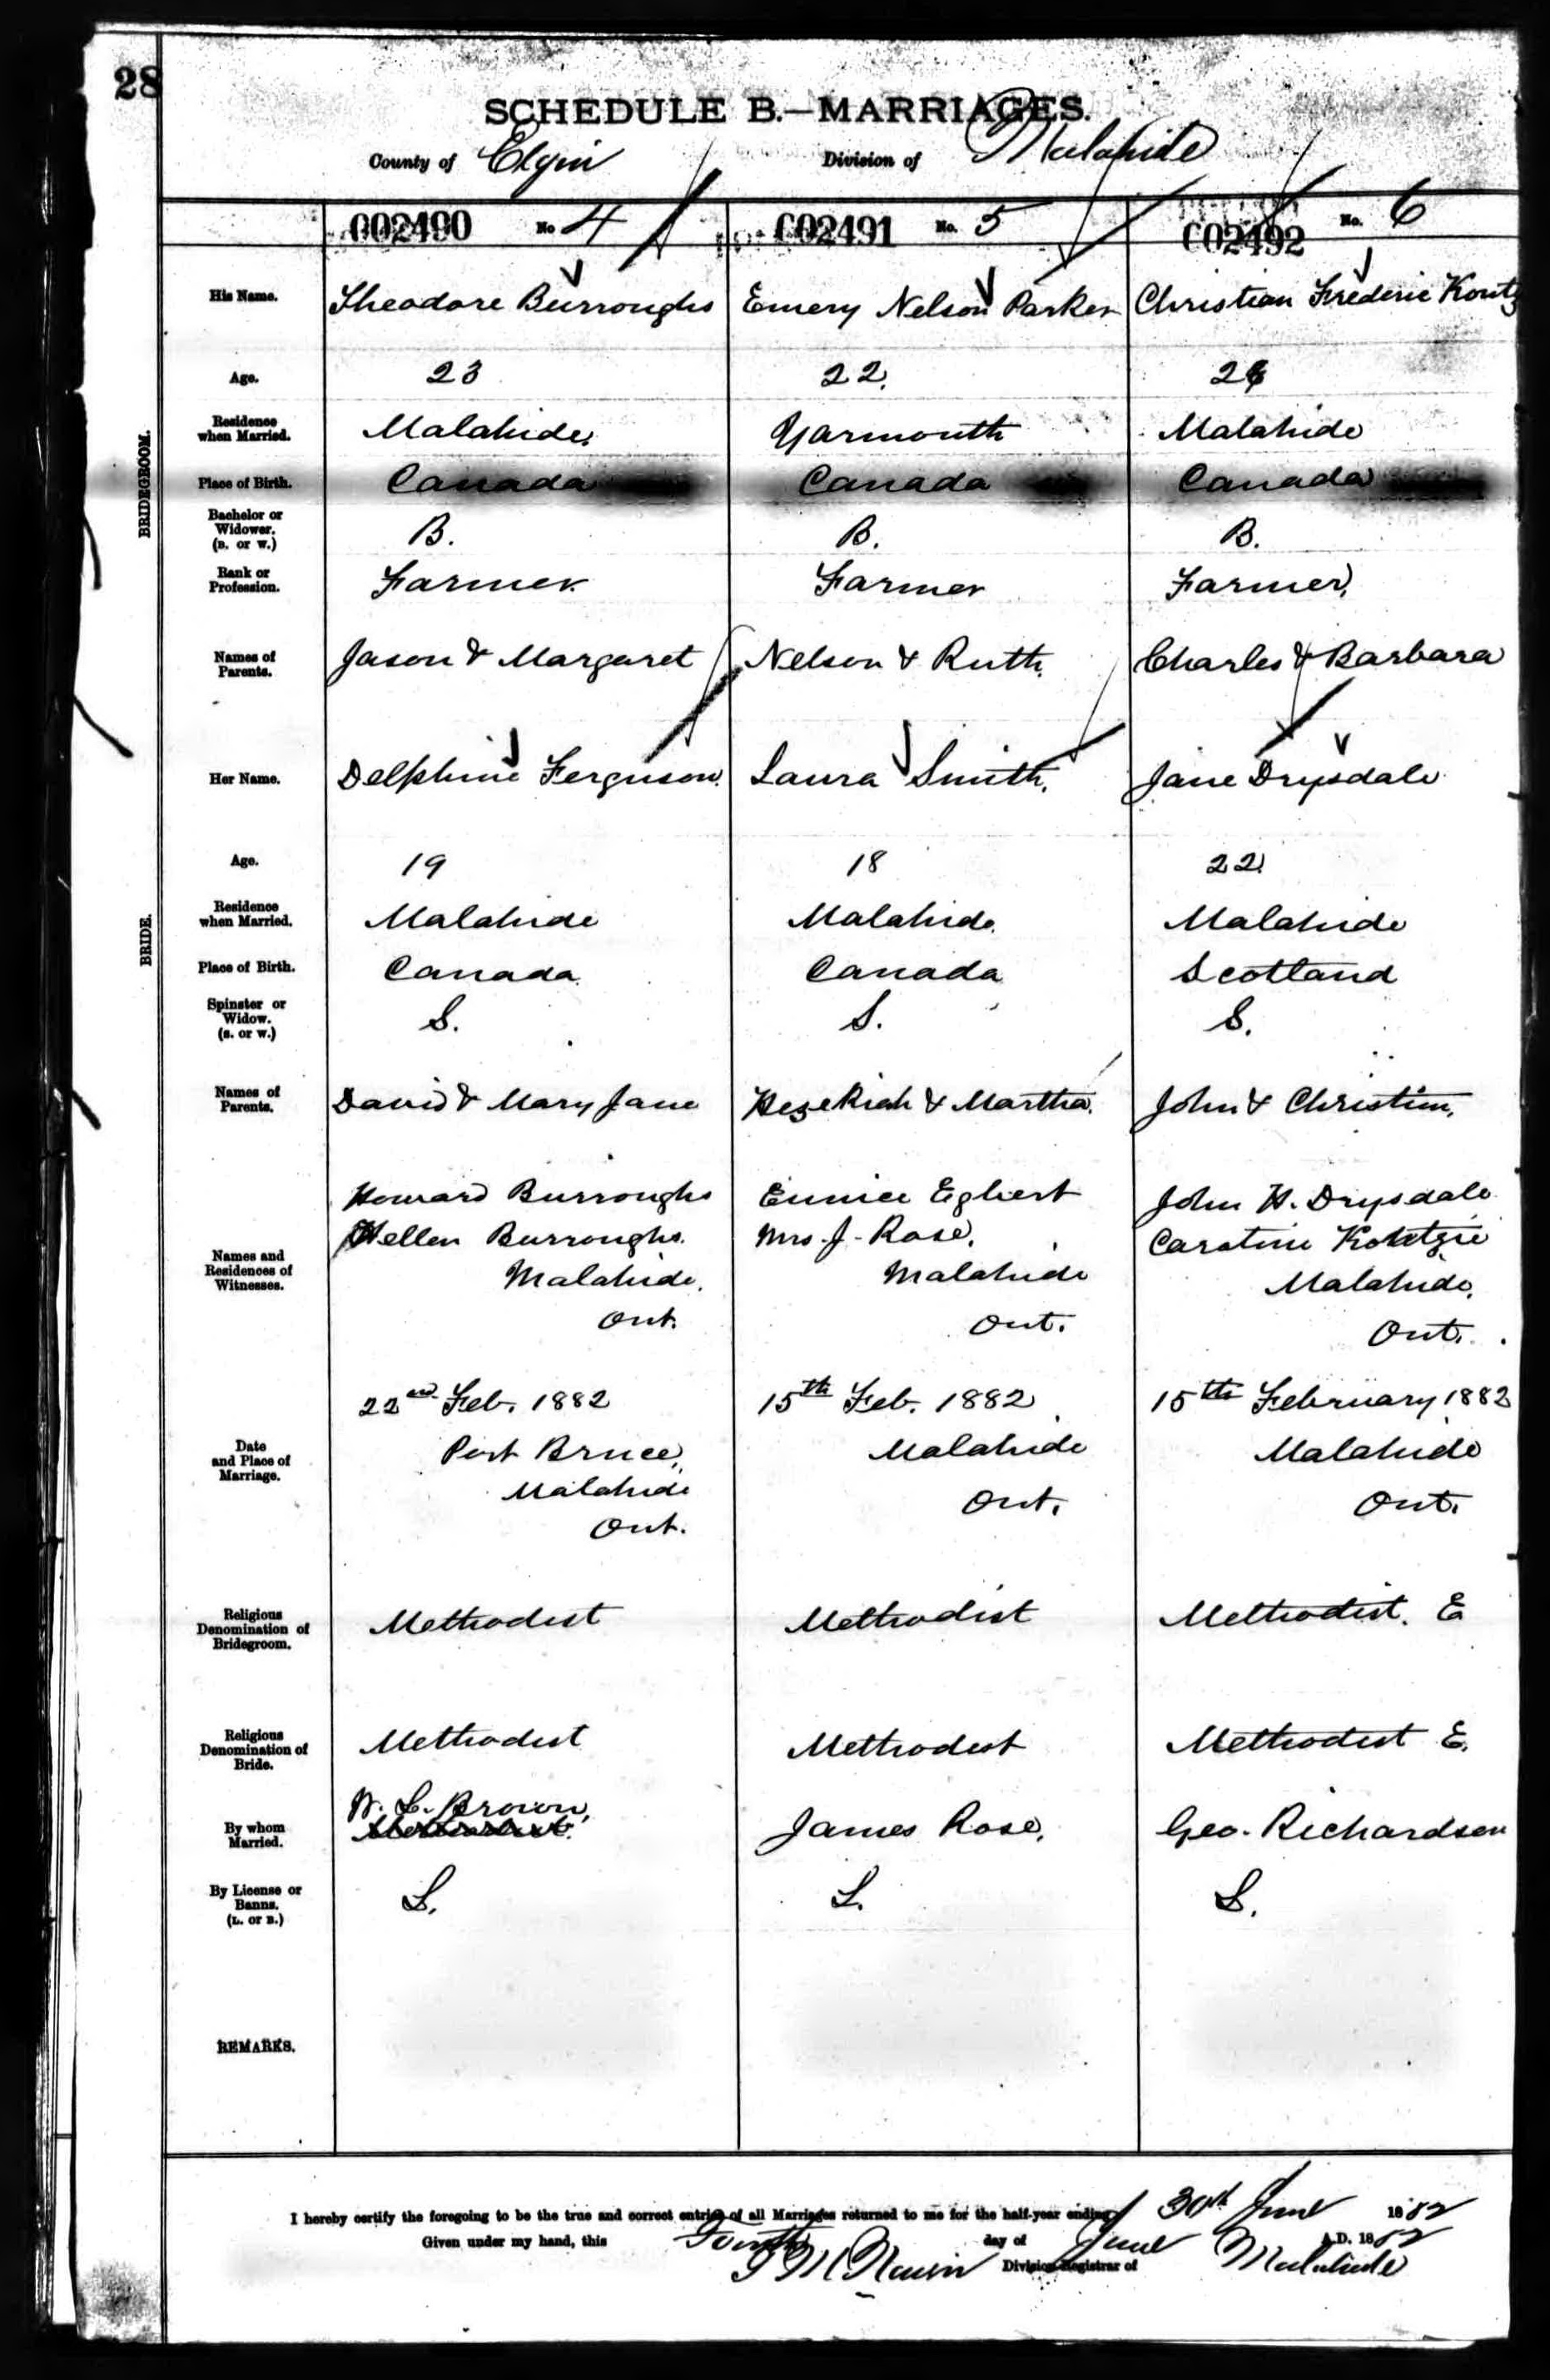 28
SCHEDULE B.—MARRIAGES.
County of Elgin Division of Malahide
002490 No 4 002491 No. 5 002492 No. 6
BRIDEGROOM.
His Name. Theodore Burroughs Emery Nelson Parker Christian Frederic
Age. 23 22.
Residence when Married. Malahide. Yarmouth Malahide
Place of Birth. Canada Canada Canada
Bachelor or Widower. (B. or W.) B. B. B.
Rank or Profession. Farmer. Farmer Farmer,
Names of Parents. Jason & Margaret Nelson & Ruth. Charles & Barbara
BRIDE.
Her Name. Delphine Ferguson. Laura Smith. Jane Drysdale
Age. 19 18 22
Residence when Married. Malahide Malahide. Malahide
Place of Birth. Canada. Canada Scotland
Spinster or Widow. (S. or W.) S. S. S.
Names of Parents. David & Mary Jane Hezekiah & Martha. John & Christian.
Names and Residences of Witnesses.
Howard Burroughs Eunice Egbert John H. Drysdale
Hellen Burroughs. Mrs. J. Rose, Carotine
Malahide. Malahide Malahide.
Ont. Ont. Ont.
Date and Place of Marriage.
22nd Feb. 1882 15th Feb. 1882 15th February 1882
Port Bruce, Malahide Malahide
Malahide Ont. Ont.
Ont.
Religious Denomination of Bridegroom. Methodist Methodist Methodist. E
Religious Denomination of Bride. Methodist Methodist Methodist E.
By whom Married. Brown, James Rose, Geo. Richardson
Methodist.
By License or Banns. (L. or B.) L. L. L.
REMARKS.
I hereby certify the foregoing to be the true and correct entries of all Marriages returned to me for the half-year ending 30th June 1882
Given under my hand, this day of June A.D. 1882
Division Registrar of Malahide